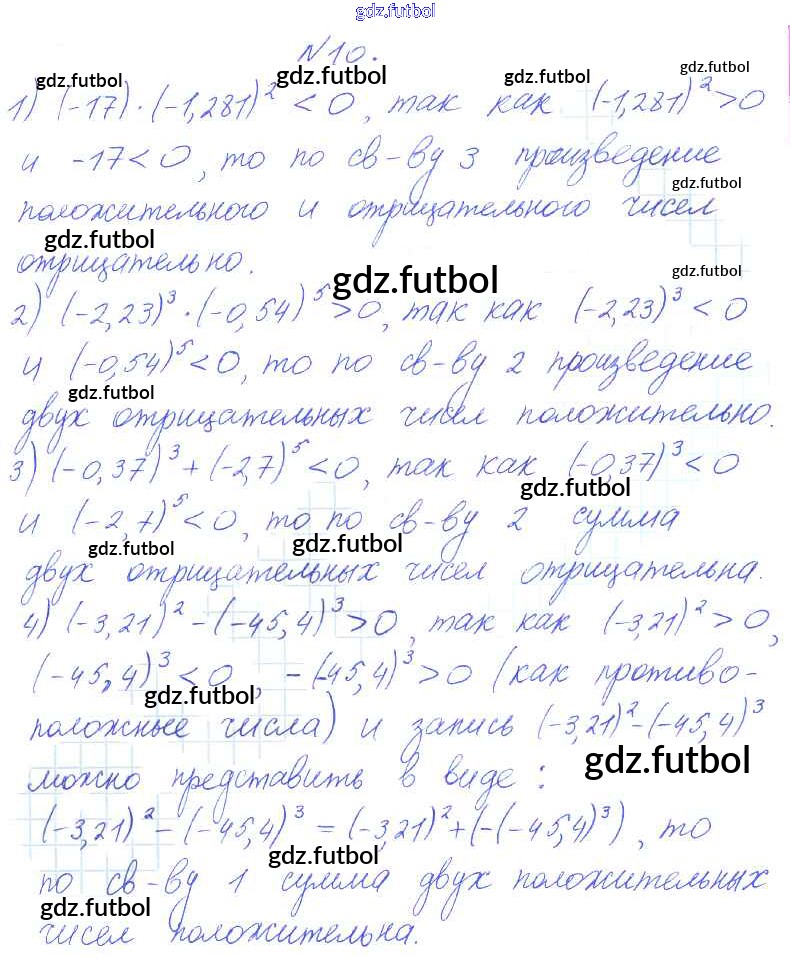 gdz.futbol
№10.
gdz.futbol gdz.futbol gdz.futbol gdz.futbol
1) (-17)·(-1,281)² < 0, так как (-1,281)² > 0
и -17 < 0, то по св-ву 3 произведение
gdz.futbol
положительного и отрицательного чисел
gdz.futbol
отрицательно.
gdz.futbol gdz.futbol
2) (-2,23)³·(-0,54)⁵ > 0, так как (-2,23)³ < 0
и (-0,54)⁵ < 0, то по св-ву 2 произведение
gdz.futbol
двух отрицательных чисел положительно.
3) (-0,37)³ + (-2,7)⁵ < 0, так как (-0,37)³ < 0
gdz.futbol
и (-2,7)⁵ < 0, то по св-ву 2 сумма
gdz.futbol gdz.futbol
двух отрицательных чисел отрицательна.
4) (-3,21)² - (-45,4)³ > 0, так как (-3,21)² > 0,
(-45,4)³ < 0, -(-45,4)³ > 0 (как противо-
gdz.futbol
положные числа) и запись (-3,21)² - (-45,4)³
gdz.futbol
можно представить в виде:
(-3,21)² - (-45,4)³ = (-3,21)² + (-(-45,4)³), то
gdz.futbol
по св-ву 1 сумма двух положительных
gdz.futbol
чисел положительна.